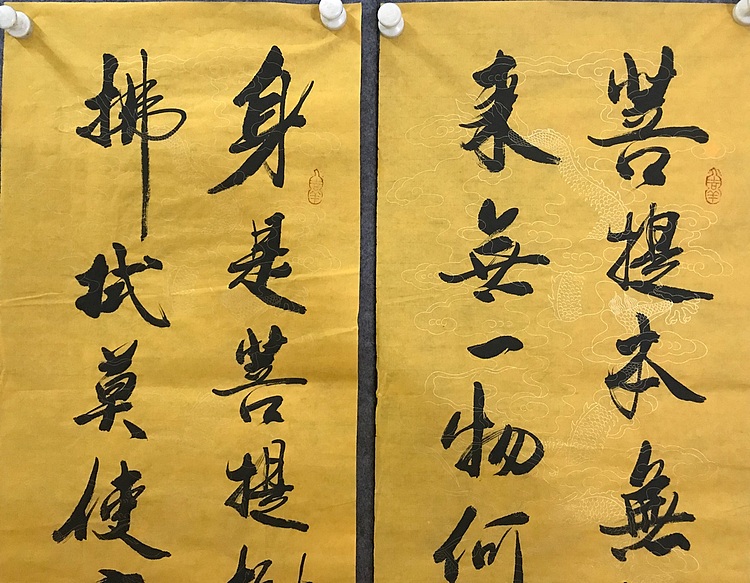 菩提本無
来無一物何
身是菩提
拂拭莫使